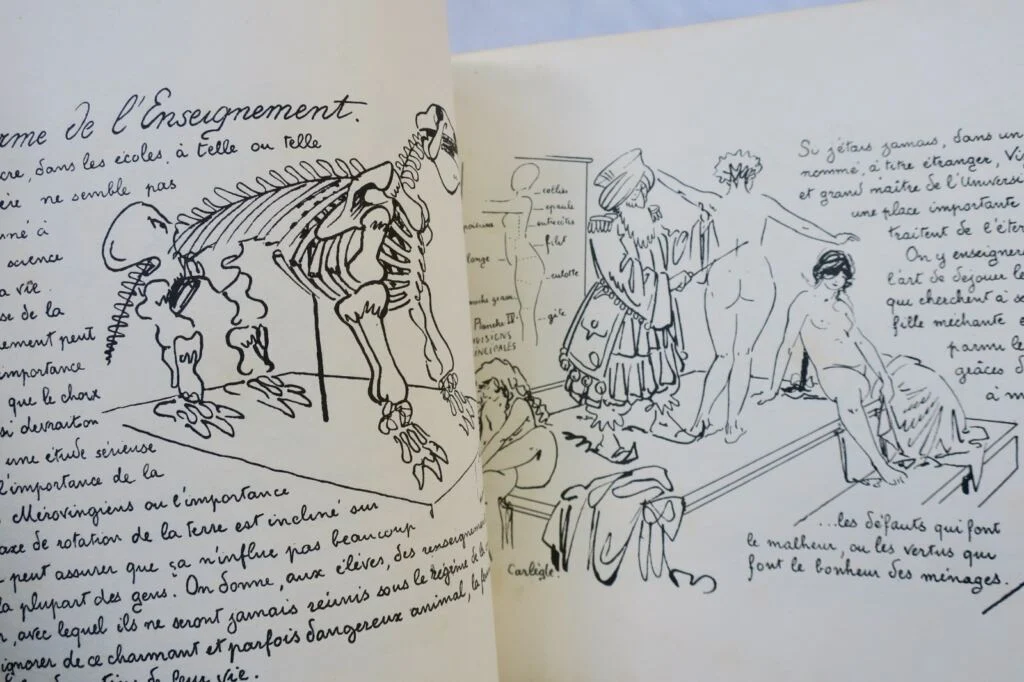 rme de l'Enseignement.
cre, dans les écoles, à telle ou telle
ère ne semble pas
né à
science
a vie.
se de la
nement peut
importance
que le choix
si devrait on
une étude sérieuse
l'importance de la
Mérovingiens ou l'importance
axe de rotation de la terre est incliné sur
peut assurer que ça n'influe pas beaucoup
la plupart des gens. On donne, aux élèves, des renseignem
avec lequel ils ne seront jamais réunis sous le régime de la
ignorer de ce charmant et parfois dangereux animal, la
de leur vie.
collier
épaule
poitrine
entrecôtes
filet
lange
culotte
gîte
Planche IV
DIVISIONS
INCIPALES
Carlègle.
Si j'étais jamais, dans un
nommé, à titre étranger, Vi
et grand maître de l'Universi
une place importante
traitent de l'éter
On y enseigner
l'art de déjouer le
qui cherchent à se
fille méchante e
parmi le
grâces d
à m
...les défauts qui font
le malheur, ou les vertus qui
font le bonheur des ménages.